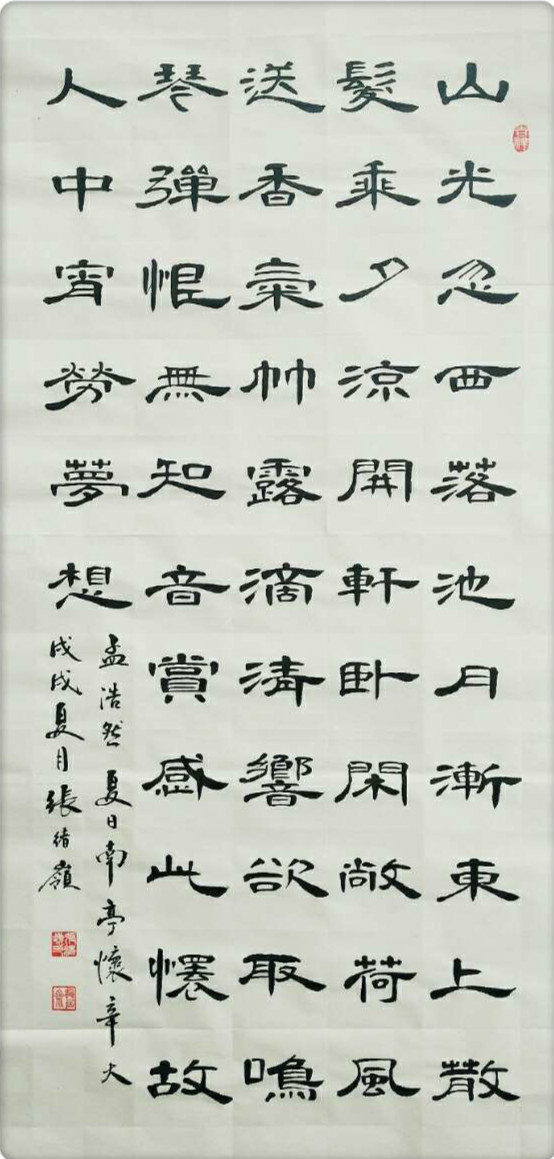 山光忽西落池月漸東上散
髮乘夕涼開軒卧閑敞荷風
送香氣竹露滴清響欲取鳴
琴彈恨無知音賞感此懷故
人中宵勞夢想
孟浩然夏日南亭懷辛大
戊戌夏月張緒嶺